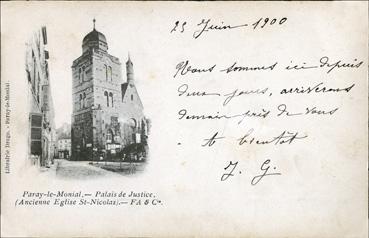 23 Juin 1900
Nous sommes ici depuis
deux jours, arriverons
demain près de vous
A bientôt
J. G.
Librairie Drago. - Paray-le-Monial.
Paray-le-Monial. — Palais de Justice.
(Ancienne Eglise St-Nicolas). — FA & Cie.